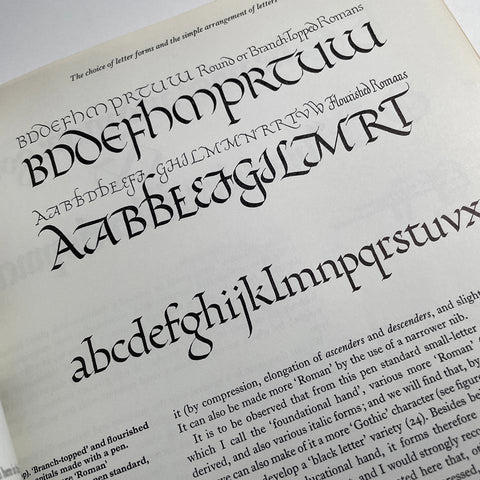 The choice of letter forms and the simple arrangement of letters
BDDEFHMPRTUW Round or Branch-Topped Romans
BDDEFHMPRTUW
AABBDBEEFF·GHILMMNRRTVW Flourished Romans
AABBEEFGILMRT
abcdefghijklmnopqrstuvx
it (by compression, elongation of ascenders and descenders, and slight
It can also be made more 'Roman' by the use of a narrower nib.
It is to be observed that from this pen standard small-letter
which I call the 'foundational hand', various more 'Roman'
derived, and also various italic forms; and we will find that, by
we can also make of it a more 'Gothic' character (see figure
develop a 'black letter' variety (24). Besides be
educational hand, it forms therefore
and I would strongly reco
ated here that, or
'Branch-topped' and flourished
pitals made with a pen.
more 'Roman'
pen standard,